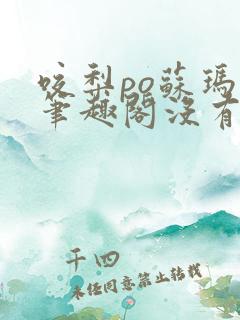 咬梨po蘇瑪
筆趣閣沒有
千四
未经同意禁止转载